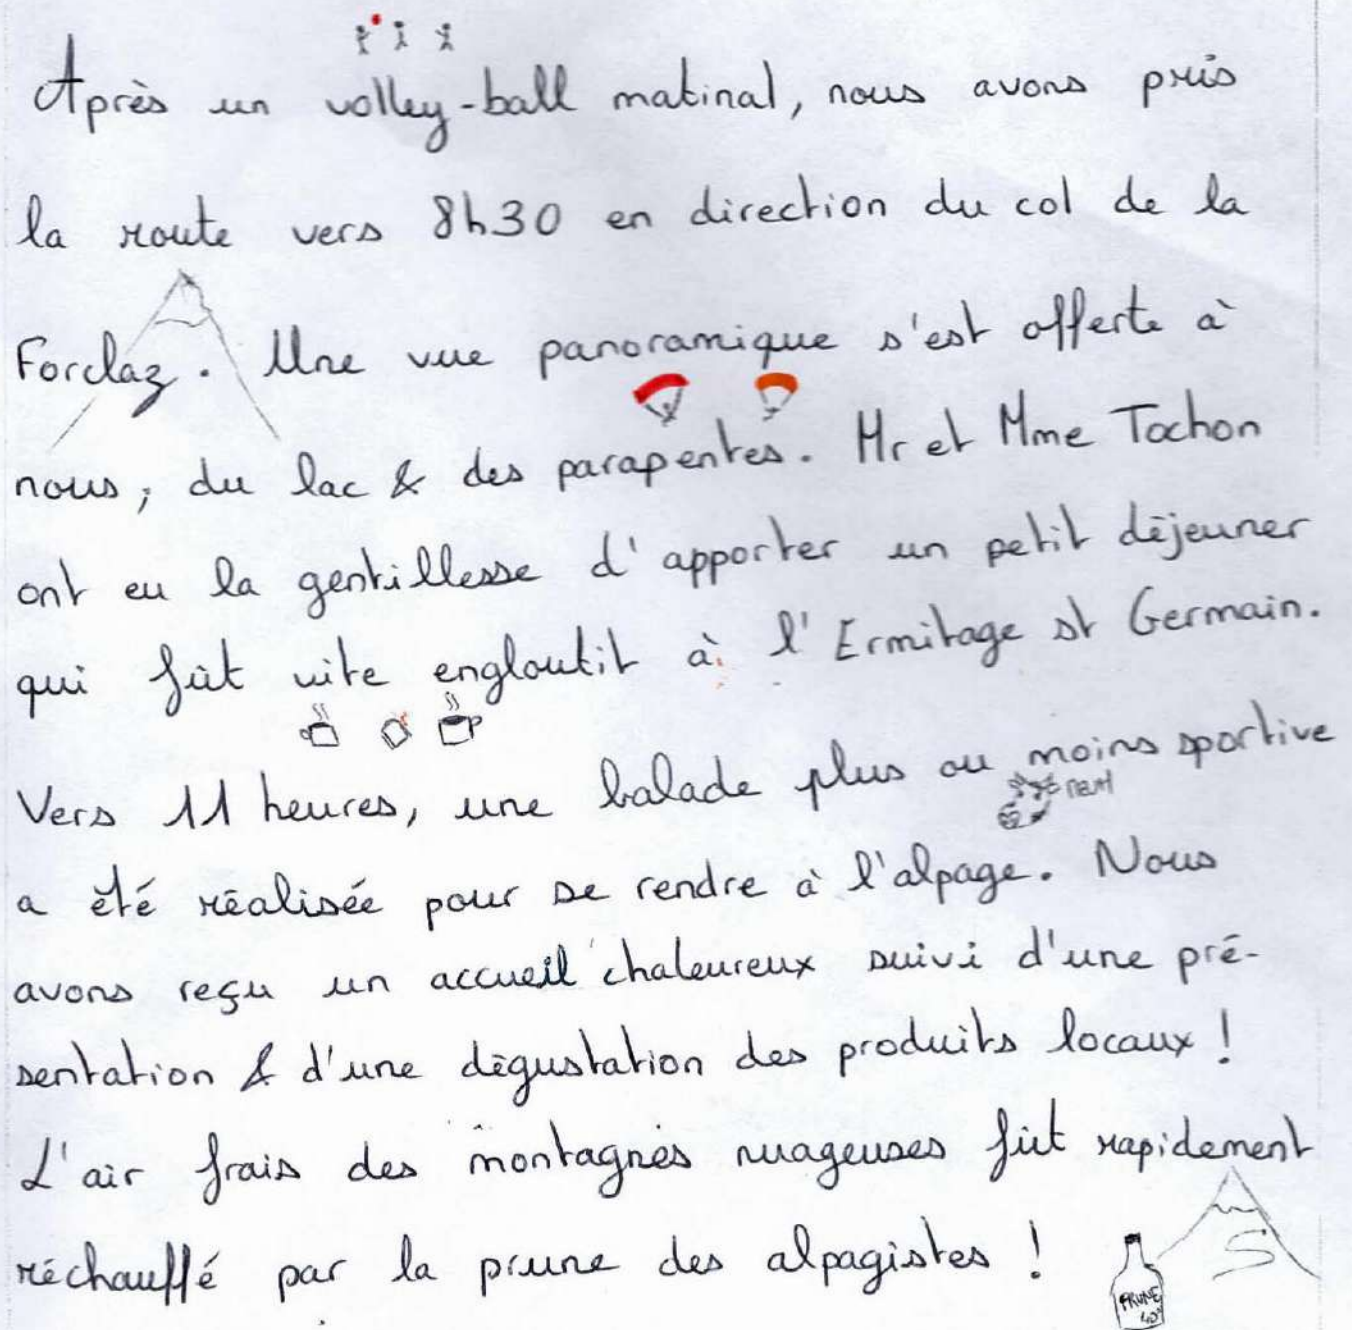 Après un volley-ball matinal, nous avons pris
la route vers 8h30 en direction du col de la
Forclaz. Une vue panoramique s'est offerte à
nous, du lac & des parapentes. Mr et Mme Tochon
ont eu la gentillesse d'apporter un petit déjeuner
qui fût vite engloutit à l'Ermitage st Germain.
Vers 11 heures, une balade plus ou moins sportive
a été réalisée pour se rendre à l'alpage. Nous
avons reçu un accueil chaleureux suivi d'une pré-
sentation & d'une dégustation des produits locaux !
L'air frais des montagnes nuageuses fût rapidement
réchauffé par la prune des alpagistes !
PRUNE
40°